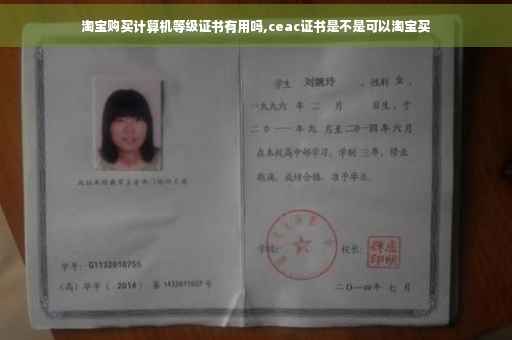 淘宝购买计算机等级证书有用吗,ceac证书是不是可以淘宝买
学生 刘婉玲 ，性别 女 ，
一九九六 年 二 月 日生，于
二〇一一 年 九 月至 二〇一四 年 六 月
在本校高中部学习，学制 三 年，修业
期满，成绩合格，准予毕业。
学号： G1132010755
（高）毕字（ 2014 ）第 1432011027 号
学校：
校长：
二〇一四年 七 月